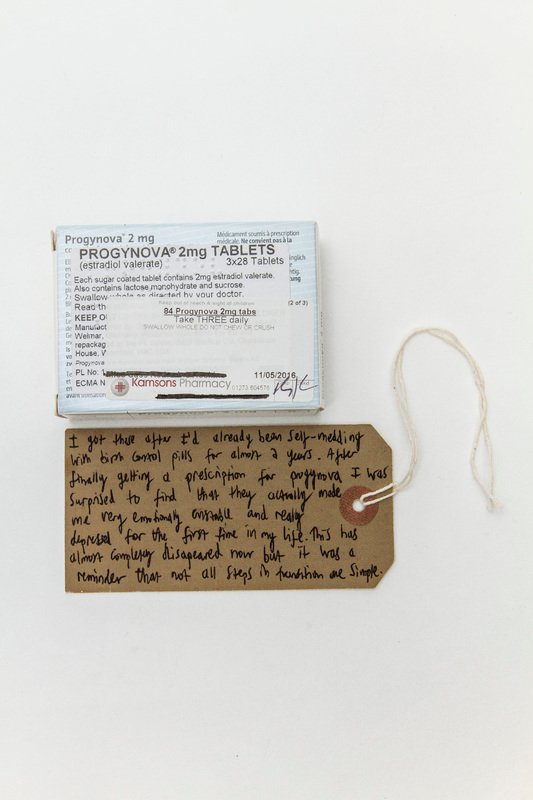 Progynova® 2 mg
Médicament soumis à prescription
médicale. Ne convient pas à la
PROGYNOVA® 2mg TABLETS
(estradiol valerate) 3x28 Tablets
Each sugar coated tablet contains 2mg estradiol valerate.
Also contains lactose monohydrate and sucrose.
Swallow whole as directed by your doctor.
Keep out of reach & sight of children
(2 of 3)
Read th
84 Progynova 2mg tabs
KEEP O
Take THREE daily
Manufact
SWALLOW WHOLE DO NOT CHEW OR CRUSH
Weimar,
repackag
House, W
Progynova
PL No: 1
11/05/2016
ECMA N
Kamsons Pharmacy 01273 604576
I got these after I'd already been self-medding
with birth control pills for almost 2 years. After
finally getting a prescription for progynova I was
surprised to find that they actually made
me very emotionally unstable and really
depressed for the first time in my life. This has
almost completely disapeared now but it was a
reminder that not all steps in transition are simple.